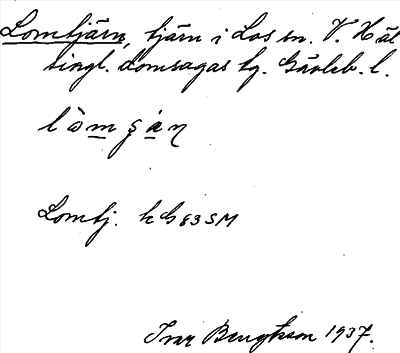 Lomtjärn, tjärn i Los sn. V. Häl
singl. domsagas tg. Gävleb. l.
lòmʂàɳ
Lomtj. k G 83 SM
Ivar Bengtsson 1937.